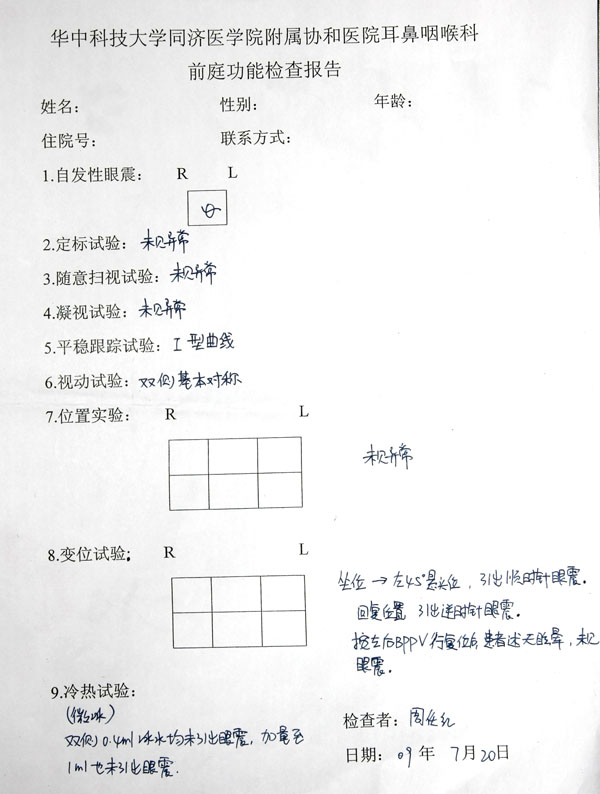 华中科技大学同济医学院附属协和医院耳鼻咽喉科
前庭功能检查报告
姓名： 性别： 年龄：
住院号： 联系方式：
1.自发性眼震： R L
2.定标试验：未见异常
3.随意扫视试验：未见异常
4.凝视试验：未见异常
5.平稳跟踪试验：I 型曲线
6.视动试验：双侧基本对称
7.位置实验： R L
未见异常
8.变位试验： R L
坐位→左45°悬头位，引出顺时针眼震。
回复位置 引出逆时针眼震。
按左后BPPV行复位后，患者述无眩晕，未见
眼震。
9.冷热试验：
(微冰)
双侧0.4ml冰水均未引出眼震，加量至
1ml也未引出眼震.
检查者：周
日期：09年 7月20日